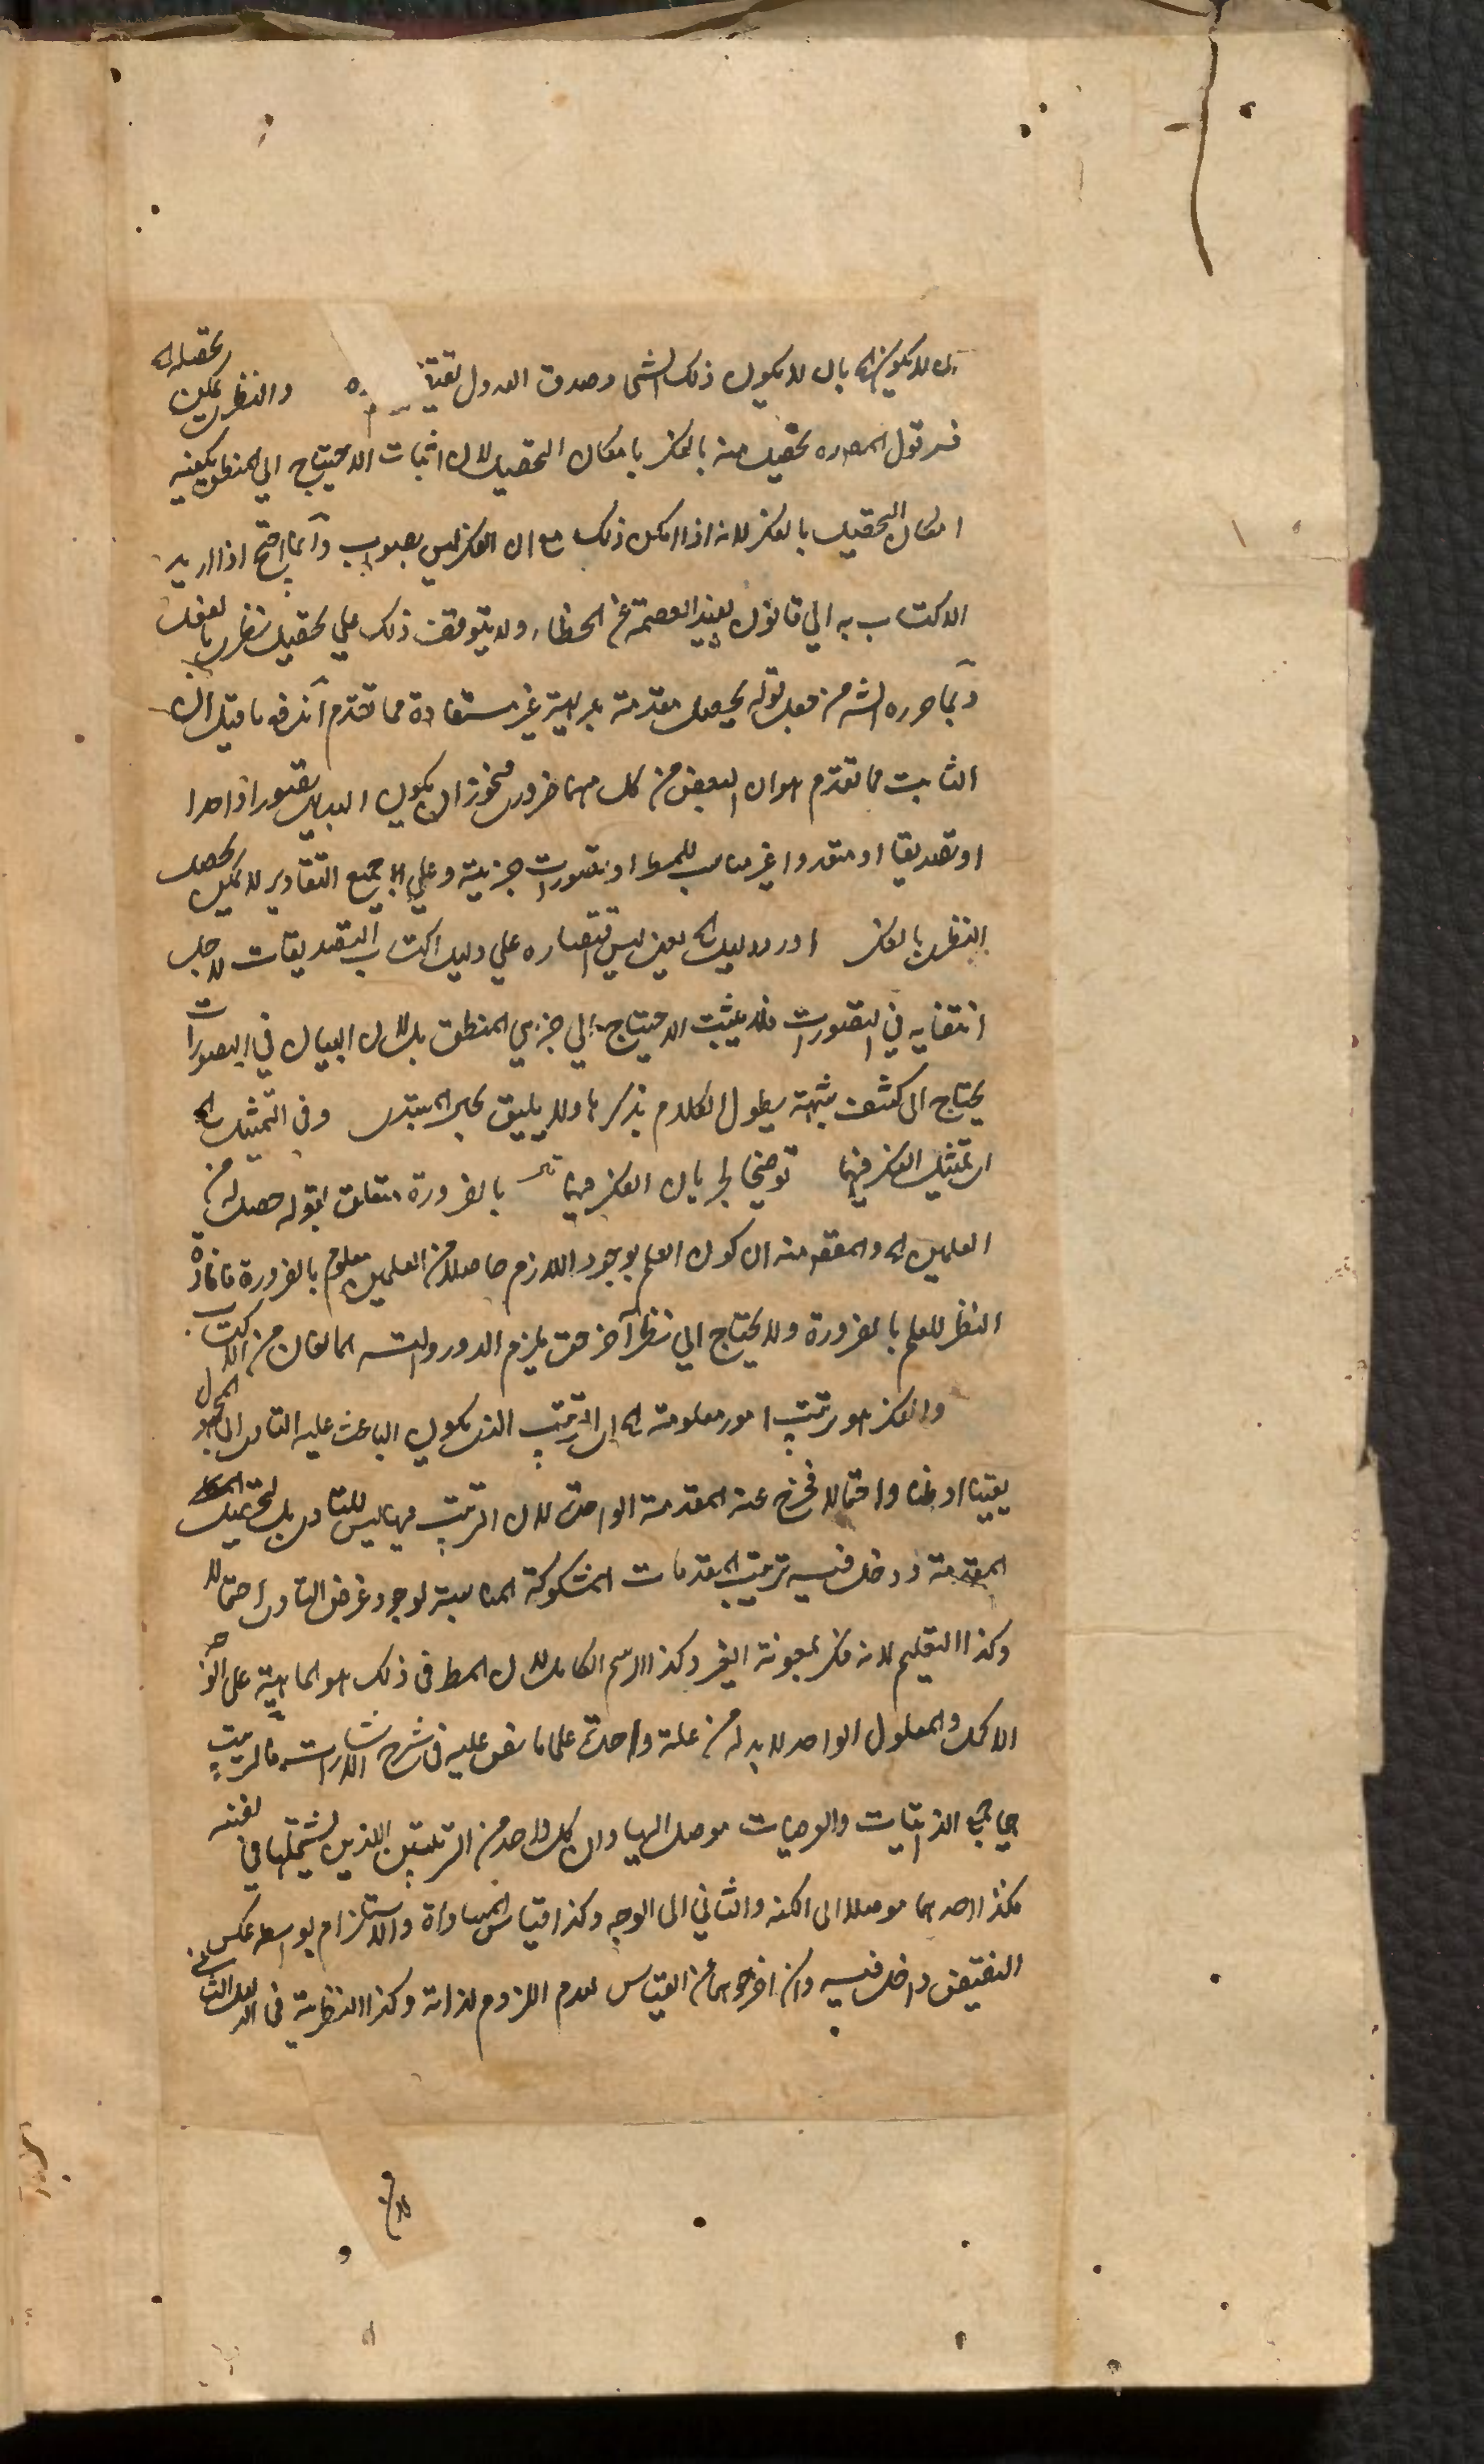 بل لا يكون الخ بان لا يكون ذلك الشئ وصدق الاول يقتضي والنظرى يمكن تحصيله الخ
فسر قول المص وه تحصيله منه بالفكر بامكان التحصيل لان اثبات الاحتياج الي المنطق يكفيه
امكان التحصيل بالفكر لانه اذا امكن ذلك مع ان الفكر ليس بصواب دائما احتيج اذا اريد
الاكتساب به الي قانون يفيد العصمة عن الخطاء ولا يتوقف ذلك علي تحصيل نظرى بالفعل
وبما حرره الش من جعل قوله يحصل مقدمة بديهية غير مستفادة مما تقدم اندفع ما قيل ان
الثابت مما تقدم هو ان البعض من كل منهما ضرورى فيجوز ان يكون البديهى تصورا واحدا
او تصديقا او متعددا غير مناسب للمط او تصورات جزئية وعلي جميع التقادير لا يمكن تحصيل
النظرى بالفكر اورد دليلا الخ يعني ليس اقتصاره علي دليل اكتساب التصديقات لاجل
انتفائه في التصورات فلا يثبت الاحتياج الي جزئي المنطق بل لان البيان في التصورات
يحتاج الى كشف شبهة يطول الكلام بذكرها ولا يليق بحال المبتدى وفي التمثيل الخ
اى تمثيل الفكر فيهما توضيحا لجريان الفكر فيهما بالضرورة متعلق بقوله حصل له من
العلمين الخ والمقصود منه ان كون العلم بوجود اللازم حاصلا من العلمين معلوم بالضرورة فافادة
النظر للعلم بالضرورة ولا يحتاج الي نظر آخر حتى يلزم الدور والتسه المانعان من الاكتساب
والفكر هو ترتيب امور معلومة الخ اى الترتيب الذى يكون الباعث عليه التأدى الى المجهول
يقينا او ظنا او احتمالا فخرج عنه المقدمة الواحدة لان الترتيب فيها ليس للتأدى بل لتحصيل
المقدمة ودخل فيه ترتيب المقدمات المشكوكة المناسبة لوجود غرض التأدى احتمالا
وكذا التعليم لانه فكر بمعونة الغير وكذا الرسم الكامل لان المط فى ذلك هو الماهية على الوجه
الاكمل والمعلول الواحد لا بد له من علة واحدة على ما نص عليه فى شرح الاشارات فالترتيب
الذاتيات والعرضيات موصل اليها وان كل واحد من الترتيبين اللذين يشملها في نفسه
فكذا احدهما موصلا الى الكنه والثاني الى الوجه وكذا قياس المساواة والاستلزام بواسطة عكس
النقيض داخل فيه وان اخرجوهما عن القياس لعدم اللزوم لذاته وكذا النظرية فى الدليل الثاني